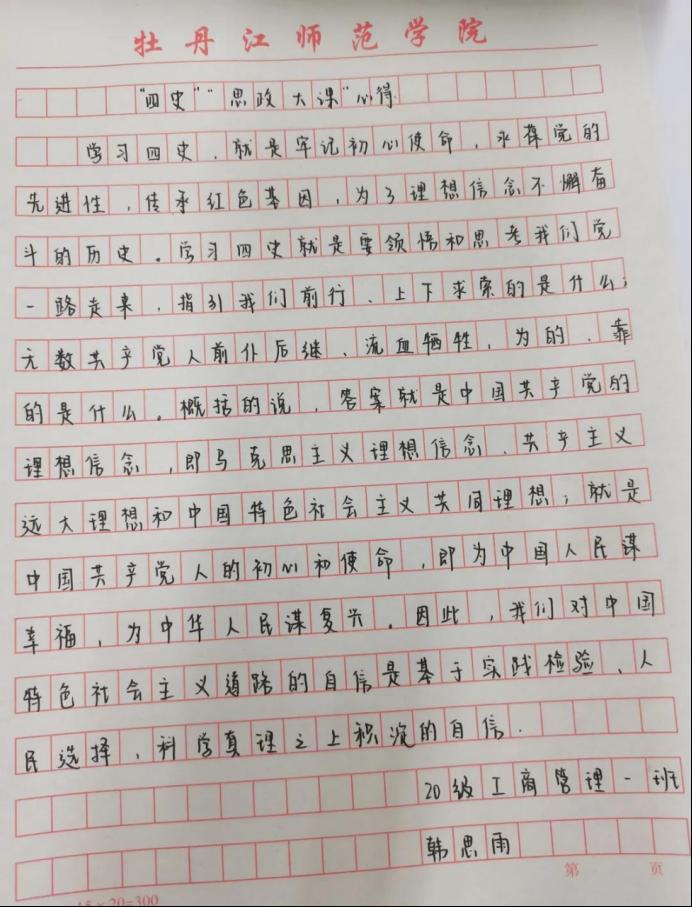 牡丹江师范学院
"四史""思政大课"心得
学习四史，就是牢记初心使命，永葆党的
先进性，传承红色基因，为了理想信念不懈奋
斗的历史。学习四史就是要领悟和思考我们党
一路走来，指引我们前行、上下求索的是什么；
无数共产党人前仆后继、流血牺牲，为的、靠
的是什么。概括的说，答案就是中国共产党的
理想信念，即马克思主义理想信念、共产主义
远大理想和中国特色社会主义共同理想；就是
中国共产党人的初心和使命，即为中国人民谋
幸福，为中华人民谋复兴。因此，我们对中国
特色社会主义道路的自信是基于实践检验、人
民选择、科学真理之上积淀的自信.
20级工商管理一班
韩思雨
第 页
15×20=300